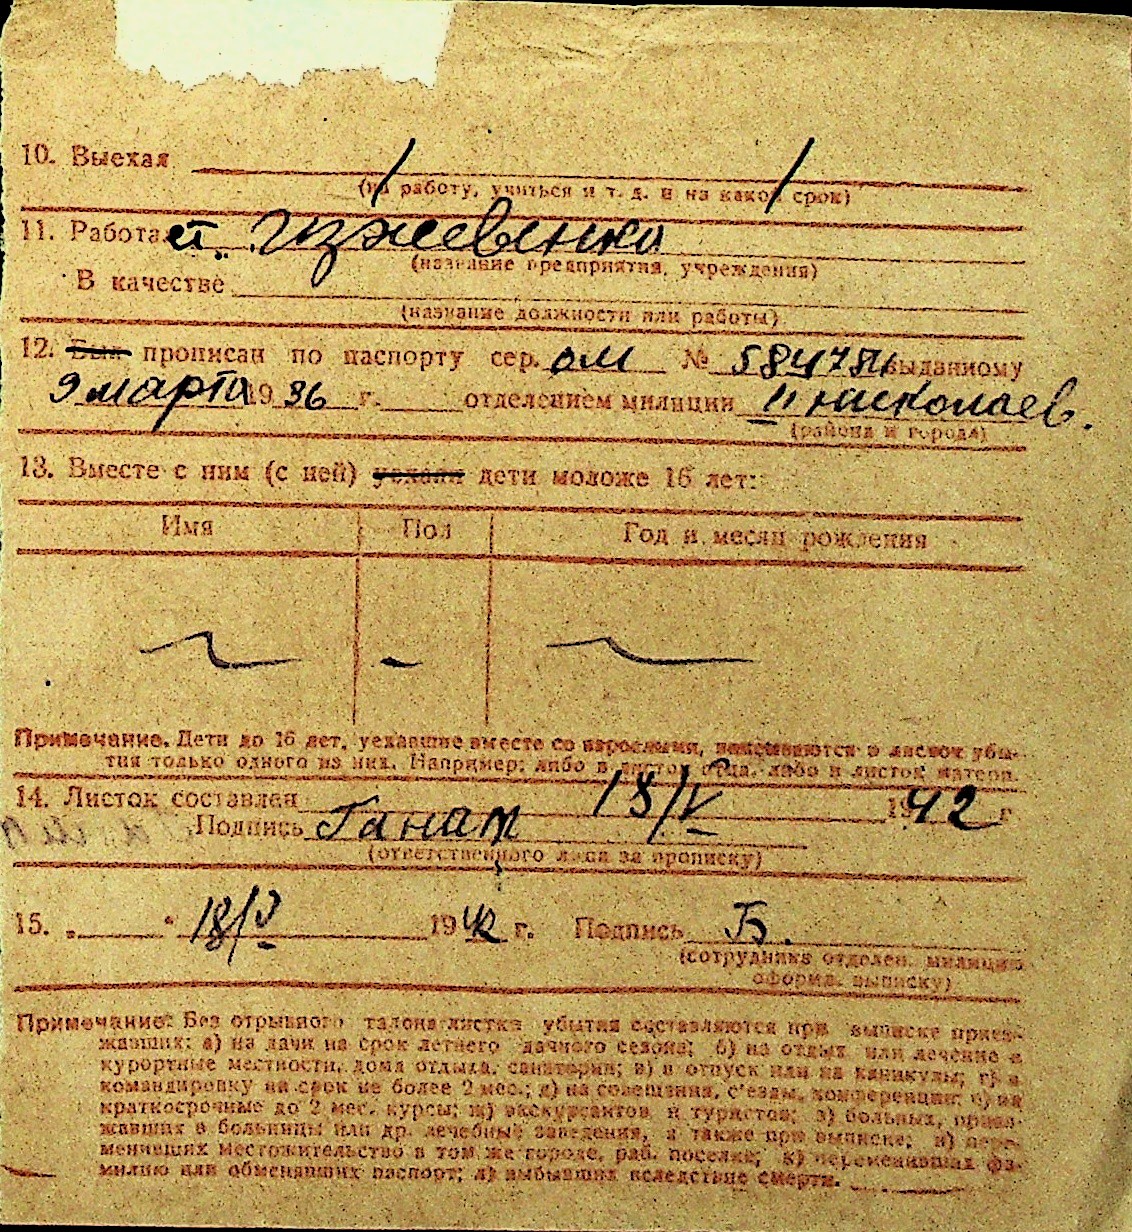 10. Выехал
(на работу, учиться и т. д. и на какой срок)
11. Работает
(название предприятия, учреждения)
В качестве
(название должности или работы)
12. Был прописан по паспорту сер. ОМ № выданному
9 марта 1936 г. отделением милиции Николаев.
(района и города)
13. Вместе с ним (с ней) уехали дети моложе 16 лет:
Имя Пол Год и месяц рождения
Примечание. Дети до 16 лет, уехавшие вместе со взрослыми, вписываются в листок убы-
тия только одного из них. Например: либо в листок отца, либо в листок матери.
14. Листок составлен 18/V 1942 г
Подпись
(ответственного лица за прописку)
15. „ “ 18/V 1942 г. Подпись Б.
(сотрудника отделен. милиции
оформл. выписку)
Примечание: Без отрывного талона листки убытия составляются при выписке приез-
жавших: а) на дачи на срок летнего дачного сезона; б) на отдых или лечение в
курортные местности, дома отдыха, санатории; в) в отпуск или на каникулы; г) в
командировку на срок не более 2 мес.; д) на совещания, с'езды, конференции; е) на
краткосрочные до 2 мес. курсы; ж) экскурсантов и туристов; з) больных, приез-
жавших в больницы или др. лечебные заведения, а также при выписке; и) пере-
менивших местожительство в том же городе, раб. поселке; к) переменивших фа-
милию или обменявших паспорт; л) выбывших вследствие смерти.